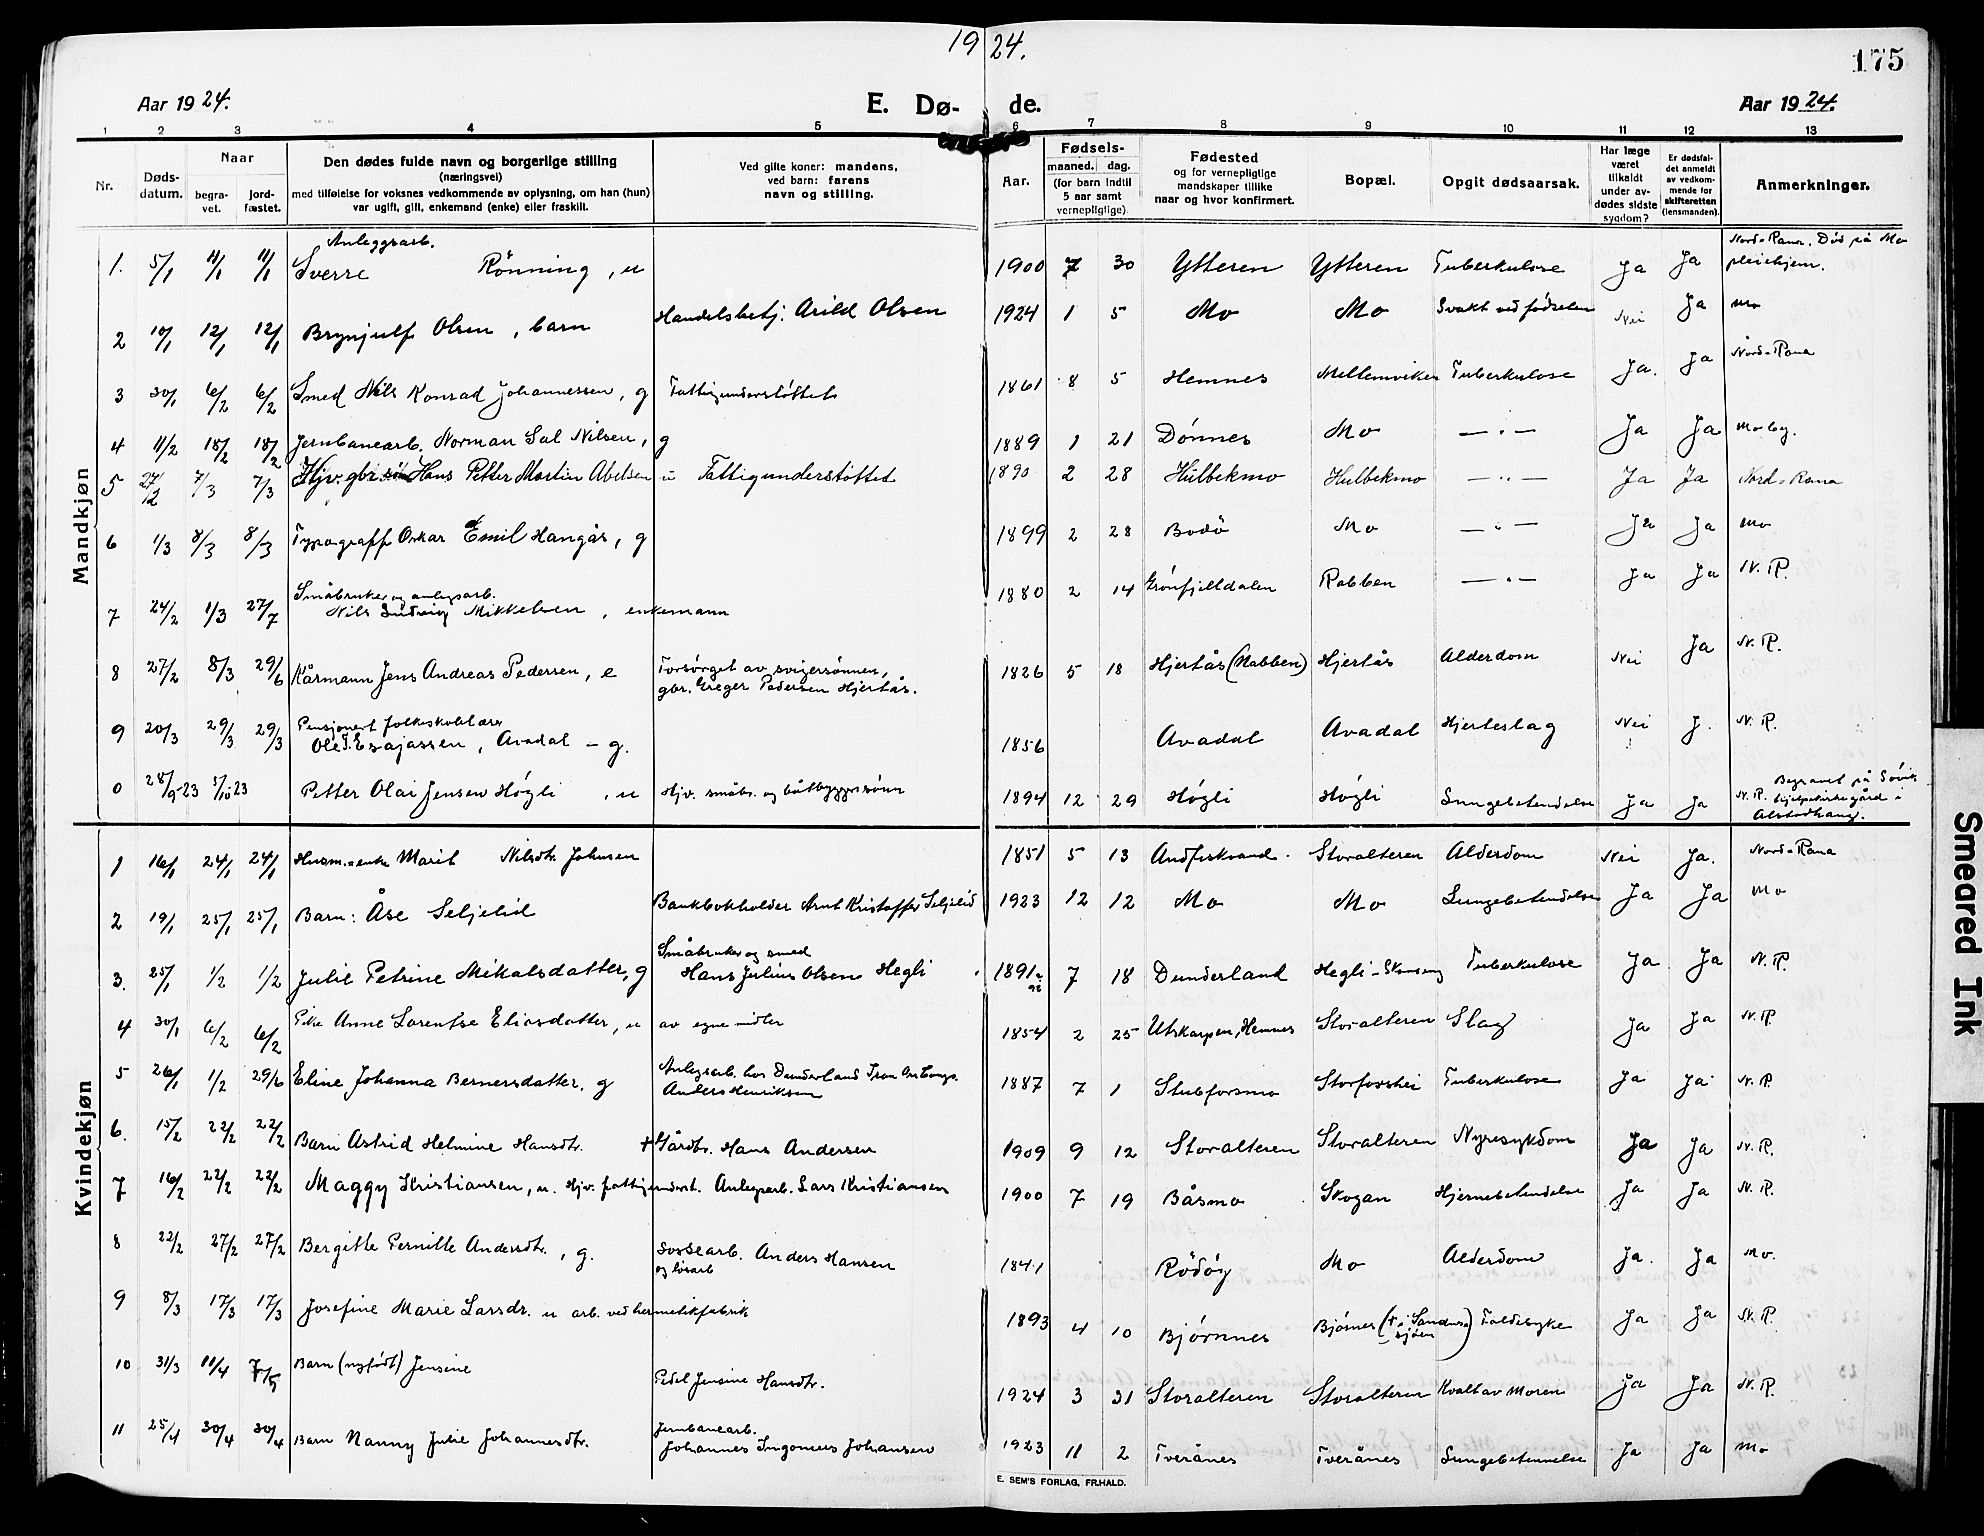 19 24.
175
Aar 1924. E. Dø- de. Aar 1924.
1 2 3 4 5 6 7 8 9 10 11 12 13
Nr.
Døds-
datum.
Naar
begra-
vet.
jord-
fæstet.
Den dødes fulde navn og borgerlige stilling
(næringsvei)
med tilføielse for voksnes vedkommende av oplysning, om han (hun)
var ugift, gift, enkemand (enke) eller fraskilt.
Ved gifte koner: mandens,
ved barn: farens
navn og stilling.
Aar.
Fødsels-
maaned. dag.
(for barn indtil
5 aar samt
vernepligtige).
Fødested
og for vernepligtige
mandskaper tillike
naar og hvor konfirmert.
Bopæl.
Opgit dødsaarsak.
Har læge
været
tilkaldt
under av-
dødes sidste
sygdom?
Er dødsfal-
det anmeldt
av vedkom-
mende for
skifteretten
(lensmanden).
Anmerkninger.
Mandkjøn
Anleggsarb.
1. 5/1 11/1 11/1 Sverre Rönning, u 1900 7 30 Ytteren Ytteren Tuberkulose Ja Ja Nord-Rana. Død på Mo
pleiehjem.
2 10/1 12/1 12/1 Brynjulf Olsen, barn Handelsbetj. Arild Olsen 1924 1 5 Mo Mo Svakt ved fødselen Nei Ja Mo
3 30/1 6/2 6/2 Smed Nils Konrad Johannessen, g Fattigunderstøttet 1861 8 5 Hemnes Mellemviken Tuberkulose Ja. Ja Nord-Rana
4 11/2 18/2 18/2 Jernbanearb. Norman Sal Nilsen, g 1889 1 21 Dönnes Mo — " — Ja Ja Mo by.
5 27/2 7/3 7/3 Hjv. gbr. søn Hans Petter Martin Abelsen u Fattigunderstøttet 1890 2 28 Hulbekmo Hulbekmo — " — Ja Ja Nord-Rana
6 1/3 8/3 8/3 Typograff Oskar Emil Hangås, g 1899 2 28 Bodö Mo — " — Ja Ja Mo
Småbruker og anlegsarb.
7 24/2 1/3 27/7 Nils Ludvig Mikkelsen, enkemann 1880 2 14 Grönfjelldalen Rabben — " — Ja Ja N. R.
8 27/2 8/3 29/6 Kårmann Jens Andreas Pedersen, e Forsörget av svigersönnen,
gbr. Greger Pedersen Hjertås. 1826 5 18 Hjertås (Nabben) Hjertås Alderdom Nei Ja N. R.
Pensjonert folkeskolelærer
9 20/3 29/3 29/3 Ole J. Esajassen, Avadal - g. 1856 Avadal Avadal Hjerteslag Nei J. N. R.
0 28/9-23 5/10 23 Petter Olai Jensen Högli, u Hjv. småb. og båtbyggerssönn 1894 12 29 Högli Högli Lungebetendelse Ja Ja Begravet på Sövik
N. R. hjelpekirkegård i
Alstadhaug.
Kvindekjøn
1 16/1 24/1 24/1 Husm.-enke Marit Nilsdtr Johnsen 1851 5 13 Andfiskvand. Storalteren Alderdom Nei Ja. Nord-Rana
2 19/1 25/1 25/1 Barn: Åse Seljelid Bankbokholder Arnt Kristoffer Seljelid 1923 12 12 Mo Mo Lungebetendelse Ja Ja Mo
Småbruker og smed
3. 25/1 1/2 1/2 Julie Petrine Mikalsdatter, g Hans Julius Olsen Hegli 1891 7 18 Dunderland Hegli - Skonseng Tuberkulose Ja Ja N. R.
4 30/1 6/2 6/2 Pike Anne Lorentse Eliasdatter, u av egne midler 1854 2 25 Utskarpen, Hemnes Storalteren Slag Ja Ja N. R.
5 26/1 1/2 29/6 Eline Johanna Bernersdatter, g Anlegsarb. hos Dunderland Iron Ore Comp.
Anders Henriksen 1887 7 1 Stubforsmo Storforshei Tuberkulose Ja Ja N. R.
6. 15/2 22/2 22/2 Barn Astrid Helmine Hansdtr. + Gårdbr. Hans Andersen 1909 9 12 Storalteren Storalteren Nyresykdom Ja Ja N. R.
7 16/2 22/2 22/2 Maggy Kristiansen, u. Hjv. fattigunderst. Anlegsarb. Lars Kristiansen 1900 7 19 Båsmo Skogan Hjernebetendelse Ja Ja N. R.
8 22/2 27/2 27/2 Bergitte Pernille Andersdtr., g. Anders Hansen
og lösarb 1841 Rödöy Mo Alderdom Ja. Ja Mo.
9 8/3 17/3 17/3 Josefine Marie Larsdr. u arb. ved hermetikfabrik 1893 4 10 Bjørnnes Bjørnes (+ i Sandnes-
sjöen) Faldesyke Ja Ja N. R.
10 31/3 11/4 7/5 Barn (nyfödt) Jensine Jensine Hansdtr. 1924 3 31 Storalteren Storalteren Kvalt av Moren Ja Ja N. R.
Jernbanearb.
11 25/4 30/4 30/4 Barn Nanny Julie Johannesdtr. Johannes Ingomus Johansen 1923 11 2 Tverånes Tverånes Lungebetennelse Ja Ja Mo
E. SEM'S FORLAG, FR.HALD.
Smeared Ink